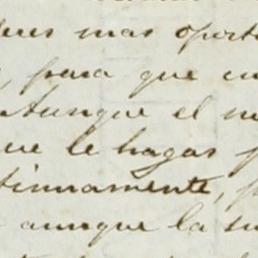 mas oport
, para que
Aunque el
que le hagas
tinuamente,
aunque la su